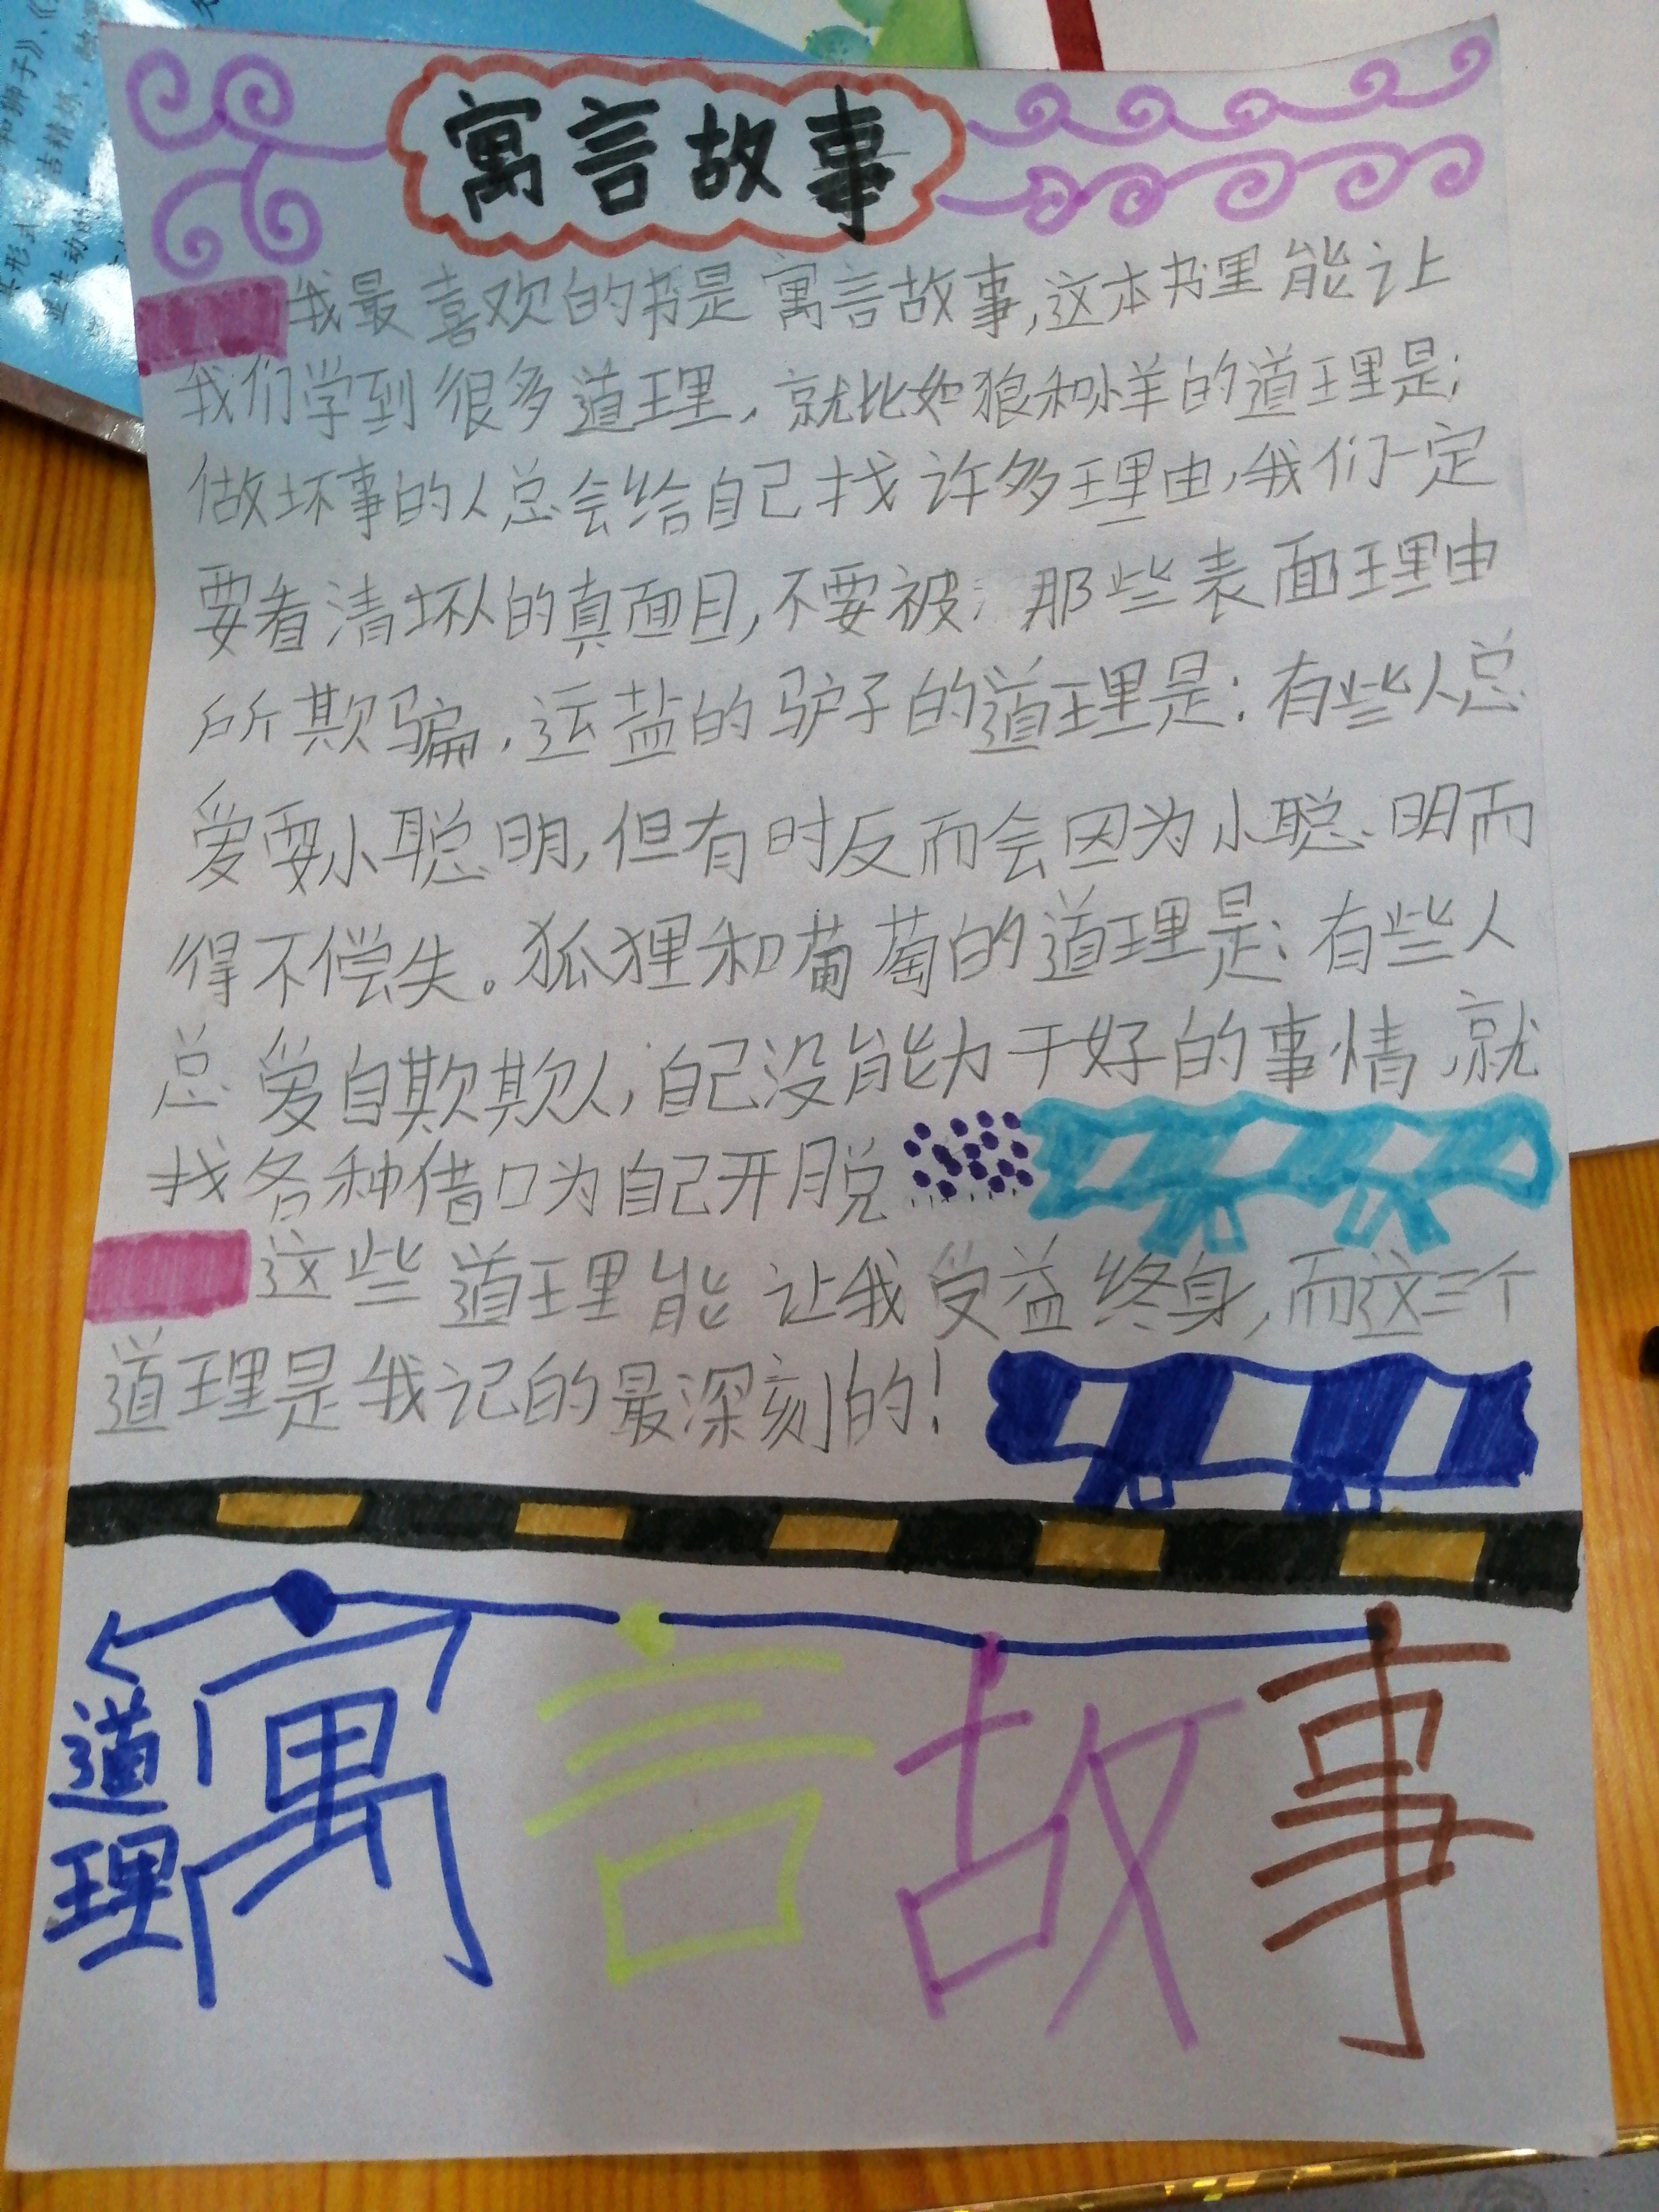 寓言故事
我最喜欢的书是寓言故事,这本书里能让
我们学到很多道理,就比如狼和小羊的道理是:
做坏事的人总会给自己找许多理由,我们一定
要看清坏人的真面目,不要被 那些表面理由
所欺骗,运盐的驴子的道理是:有些人总
爱耍小聪明,但有时反而会因为小聪明而
得不偿失。狐狸和葡萄的道理是:有些人
总爱自欺欺人,自己没能力干好的事情,就
找各种借口为自己开脱
这些道理能让我受益终身,而这三个
道理是我记的最深刻的!
道理
寓言故事